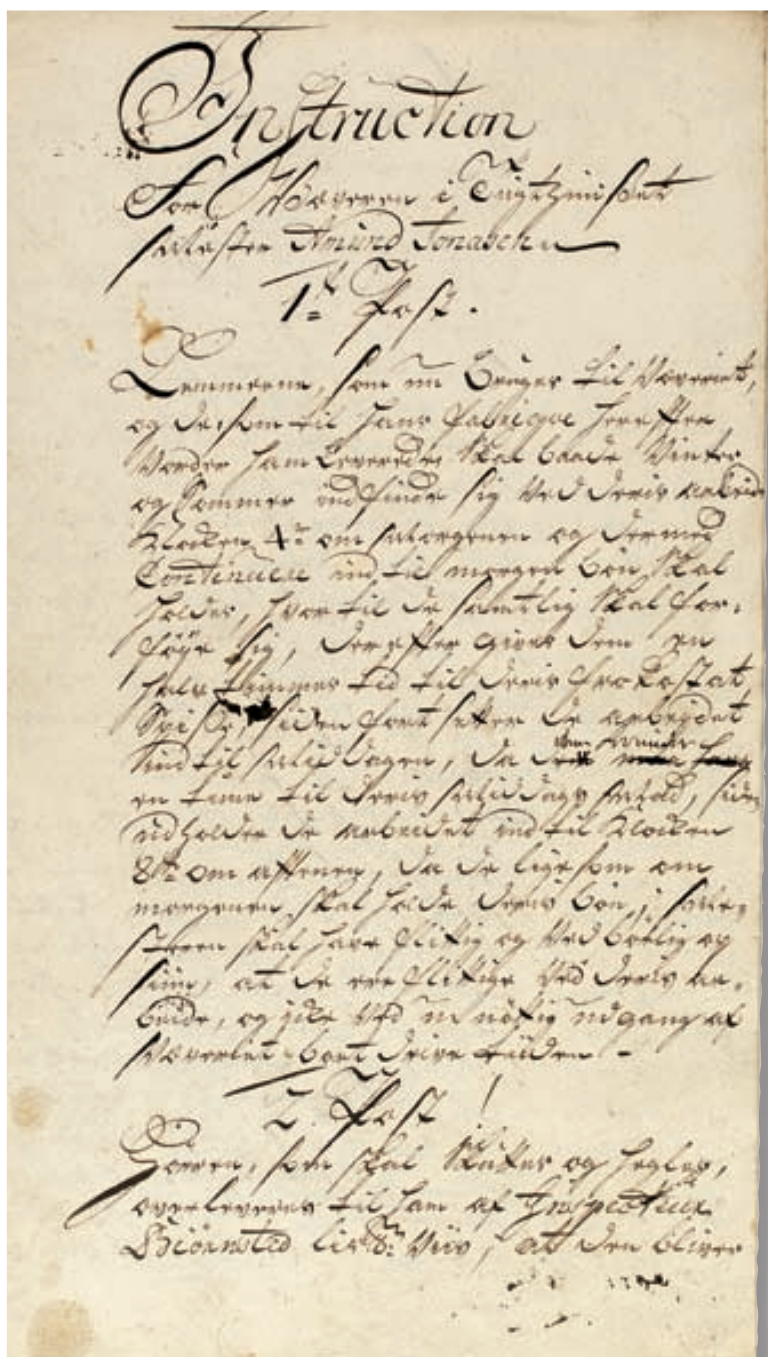 Instruction
For Wæveren i Tugthuuset
Mæster Amund Jonasen
1te Post.
Lemmerne, som nu bruges til Væveriet,
og de som til hans Fabriqve herefter
Vorder ham Leverede, Skal baade Vinter
og Sommer indfinde sig Ved deris arbeide
Klocken 4re om Morgenen og dermed
Continuere ind til morgen bøn Skal
holdes, hvor til de samtlig Skal for-
føye sig, derefter gives dem en
halv Times tid til deris frokost at
Spise, siden fort setter de arbeydet
ind til Middagen, da
en time til deris Middags Mad, siden
udholder de arbeidet ind til Klocken
8te om aftenen, da de ligesom om
morgenen skal holde deris bøn; Mæ-
steren skal have flittig og Ved børlig op
siun, at de ere flittige Ved deris ar-
beide, og icke Ved u nøttig udgang af
Væveriet bort drive tiiden -
2. Post
Hørren, som skal Skættes og hegles,
overleveres til ham af Inspecteur
Biørnsted Viis, at den bliver